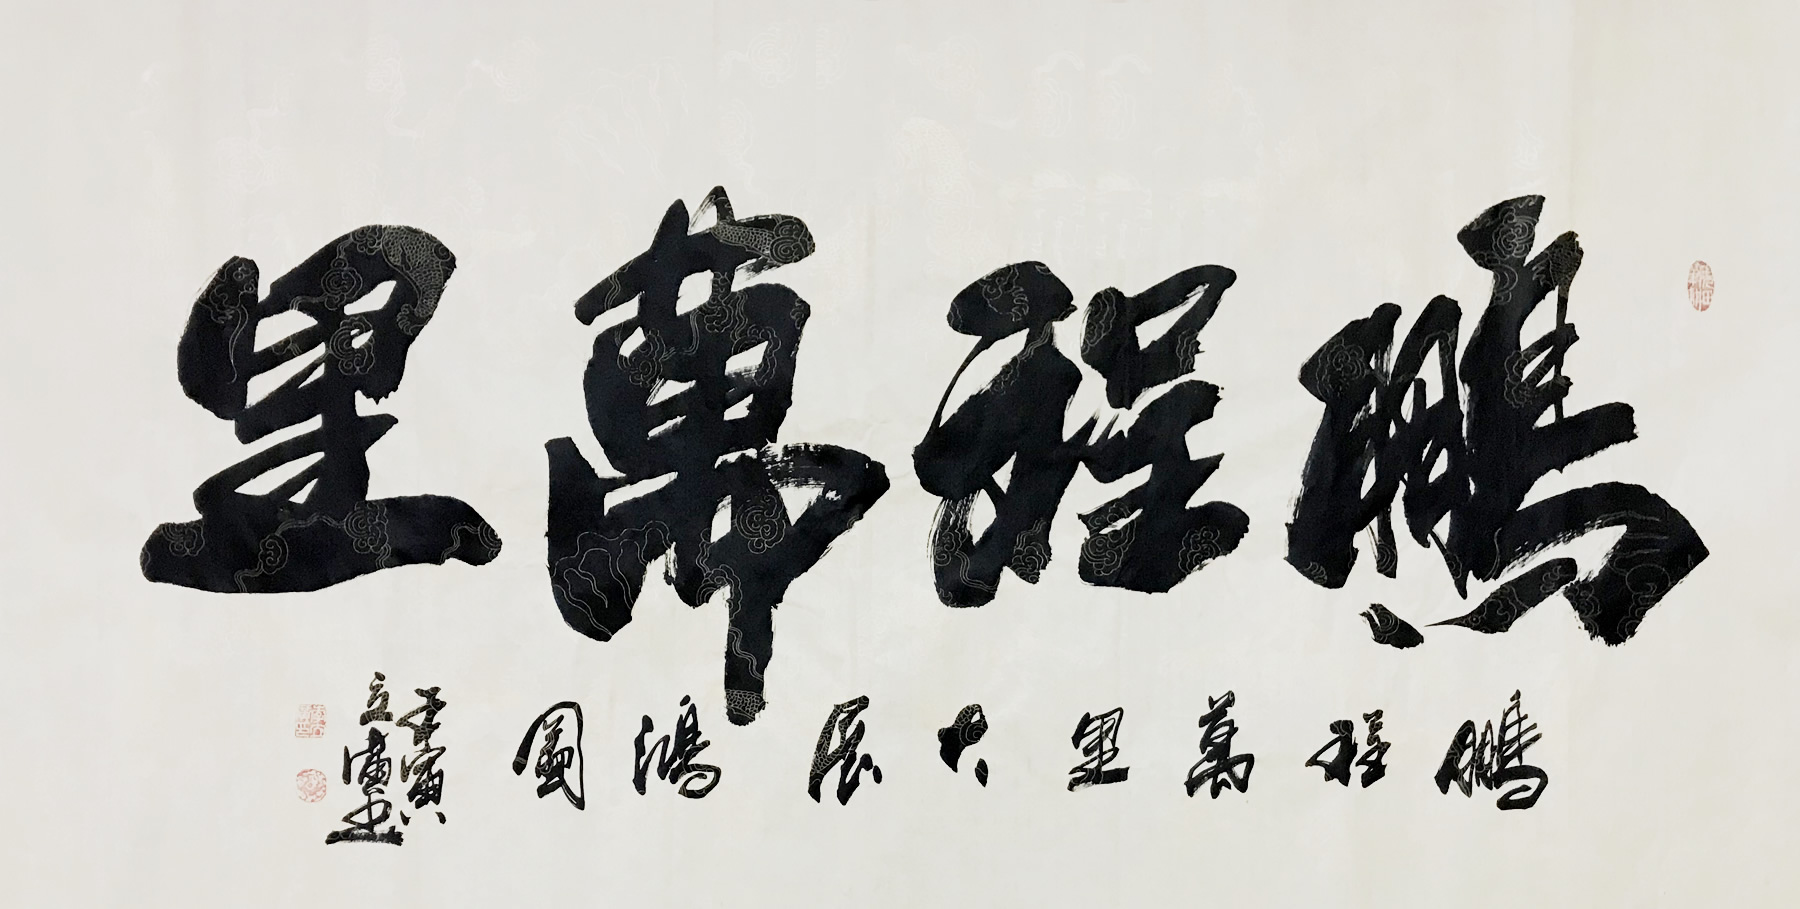 鵬程萬里
鵬程萬里大展鴻圖
壬寅
立